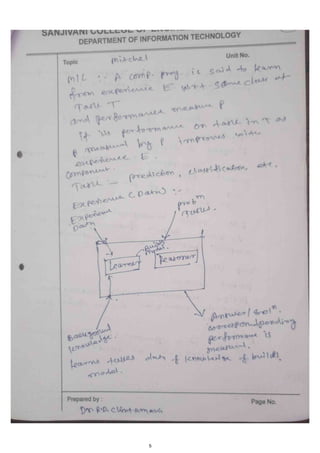 SANJIVANI COLLEGE OF
DEPARTMENT OF INFORMATION TECHNOLOGY
Topic Mitchel Unit No.
M/L :- A comp. prog. is said to learn
from experience E wrt some class of
Task T
and performance measure P
if its performance on task in T as
P measured by P improves with
experience E.
Component.
Task :- prediction, classification, etc.
Experience (Data) :-
Experience
Data
prob^m
Tasks.
model.
Learner
Reasoner
Background
knowledge.
Answer / Sol^n
corresponding
performance is
measured.
learns takes data & knowledge & builds
model.
Prepared by :
Page No.
5